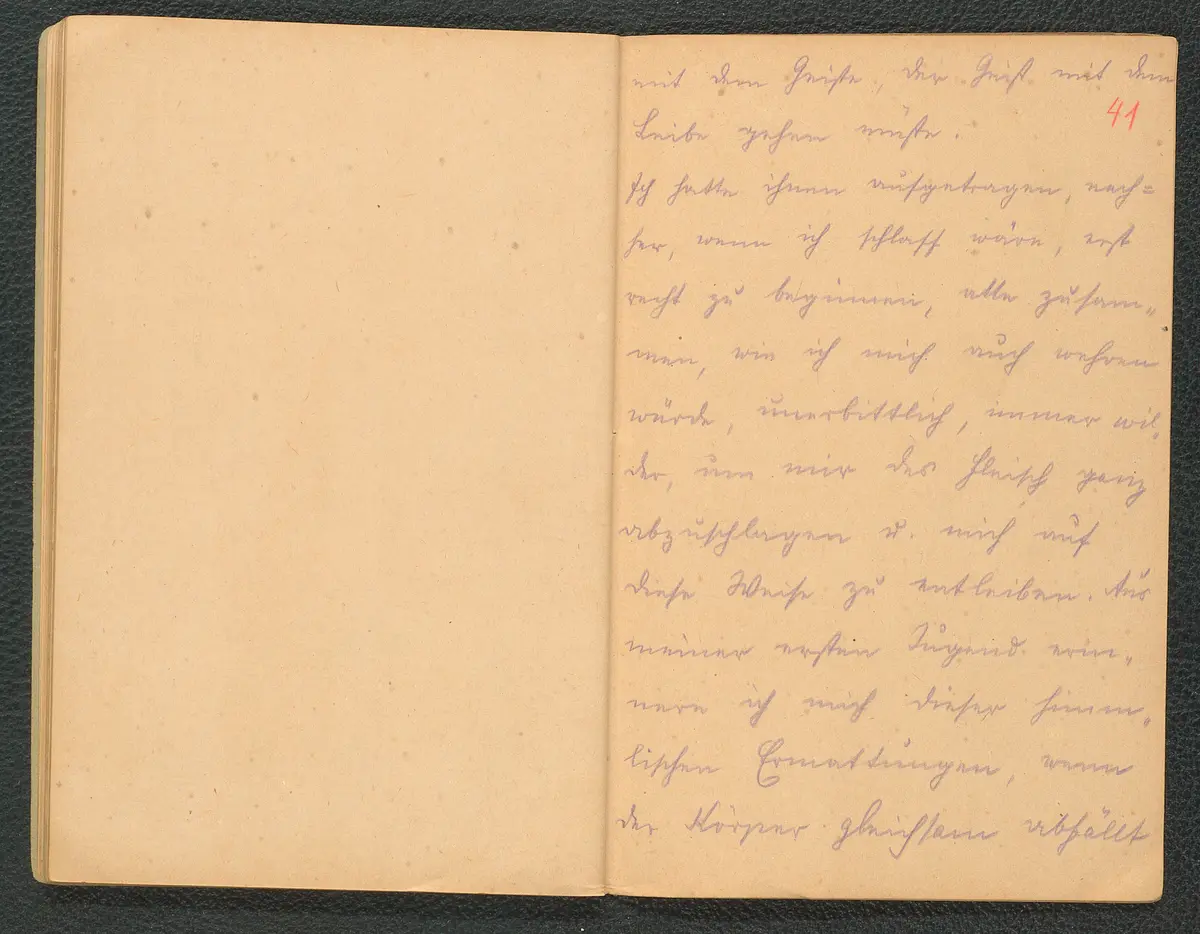 mit dem Geiste, der Geist mit dem
41
Leibe gehen müßte.
Ich hatte ihnen aufgetragen, nach=
her, wenn ich schlaff wäre, erst
recht zu beginnen, alle zusam-
men, wie ich mich auch wehren
würde, unerbittlich, immer wil-
der, um mir das Fleisch ganz
abzuschlagen u. mich auf
diese Weise zu entleiben. Aus
meiner ersten Jugend erin-
nere ich mich dieser himm-
lischen Ermattungen, wenn
der Körper gleichsam abfällt